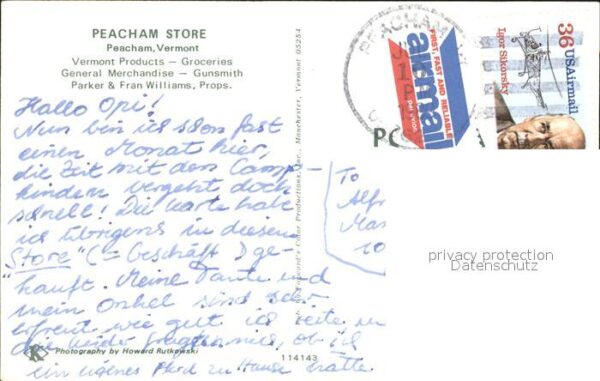 PEACHAM STORE
Peacham, Vermont
Vermont Products — Groceries
General Merchandise — Gunsmith
Parker & Fran Williams, Props.
Hallo Opi!
Nun bin ich schon fast
einen Monat hier,
die Zeit mit den Camp-
kindern vergeht doch
schnell! Die Karte habe
ich übrigens in diesem
"Store" (= Geschäft) ge-
kauft. Meine Tante und
mein Onkel sind sehr
erfreut wie gut ich reite
die Kinder fragten mich, ob ich
ein eigenes Pferd zu Hause hätte
Photography by Howard Rutkowski
114143
Color Productions, Inc., Manchester, Vermont 05254
PEACHAM
FIRST, FAST AND RELIABLE
airmail
PAR AVION
36
USAirmail
Igor Sikorsky
PO
A
To
Alfr
10
privacy protection
Datenschutz